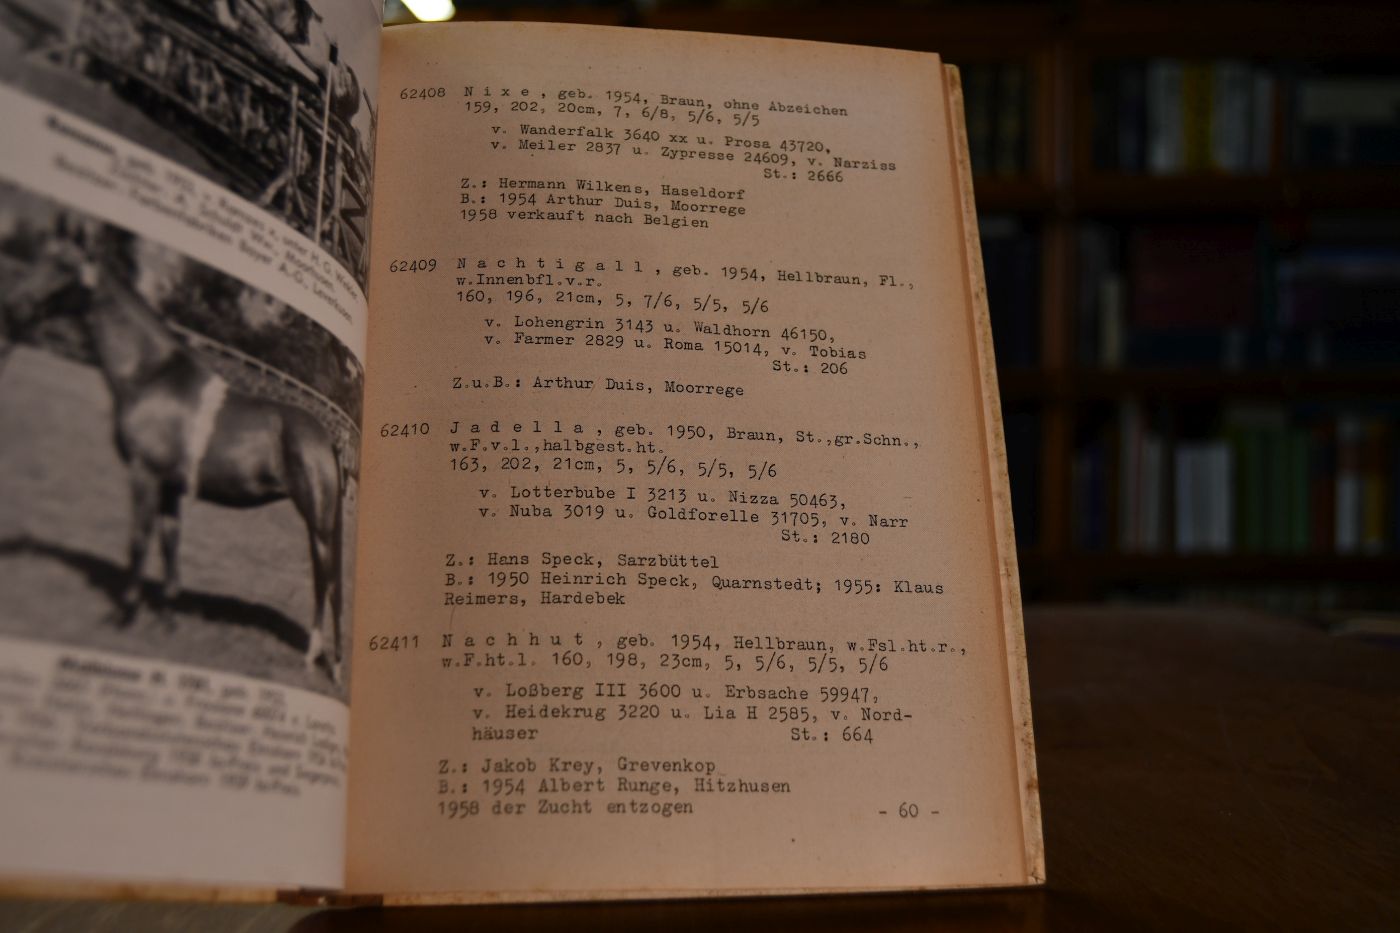 geb. 1952, Rappe
unter H. G. Winkler
A. Schmidt
Farbenfabriken Bayer A.-G., Leverkusen
62408 N i x e , geb. 1954, Braun, ohne Abzeichen
159, 202, 20cm, 7, 6/8, 5/6, 5/5
v. Wanderfalk 3640 xx u. Prosa 43720,
v. Meiler 2837 u. Zypresse 24609, v. Narziss
St.: 2666
Z.: Hermann Wilkens, Haseldorf
B.: 1954 Arthur Duis, Moorrege
1958 verkauft nach Belgien
62409 N a c h t i g a l l , geb. 1954, Hellbraun, Fl.,
w.Innenbfl.v.r.
160, 196, 21cm, 5, 7/6, 5/5, 5/6
v. Lohengrin 3143 u. Waldhorn 46150,
v. Farmer 2829 u. Roma 15014, v. Tobias
St.: 206
Z.u.B.: Arthur Duis, Moorrege
62410 J a d e l l a , geb. 1950, Braun, St.,gr.Schn.,
w.F.v.l.,halbgest.ht.
163, 202, 21cm, 5, 5/6, 5/5, 5/6
v. Lotterbube I 3213 u. Nizza 50463,
v. Nuba 3019 u. Goldforelle 31705, v. Narr
St.: 2180
Z.: Hans Speck, Sarzbüttel
B.: 1950 Heinrich Speck, Quarnstedt; 1955: Klaus
Reimers, Hardebek
62411 N a c h h u t , geb. 1954, Hellbraun, w.Fsl.ht.r.,
w.F.ht.l. 160, 198, 23cm, 5, 5/6, 5/5, 5/6
v. Loßberg III 3600 u. Erbsache 59947,
v. Heidekrug 3220 u. Lia H 2585, v. Nord-
häuser St.: 664
Z.: Jakob Krey, Grevenkop
B.: 1954 Albert Runge, Hitzhusen
1958 der Zucht entzogen
- 60 -